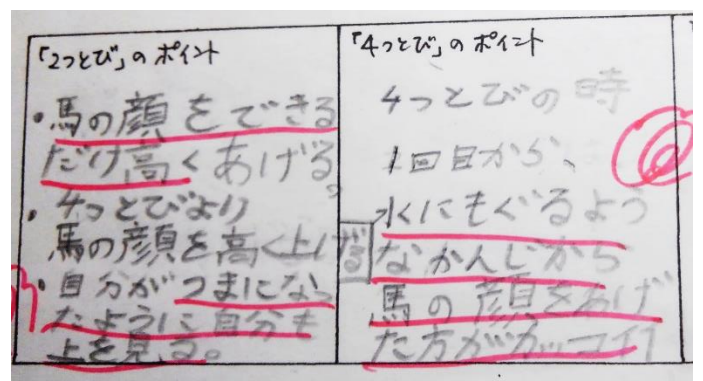 「2っとび」のポイント
・馬の顔をできる
だけ高くあげる。
・4っとびより
馬の顔を高く上げる
・自分がつまになっ
たように自分も
上を見る。
「4っとび」のポイント
4っとびの時
1回目から、
水にもぐるよう
なかんじから
馬の顔をあげ
た方がカッコイイ